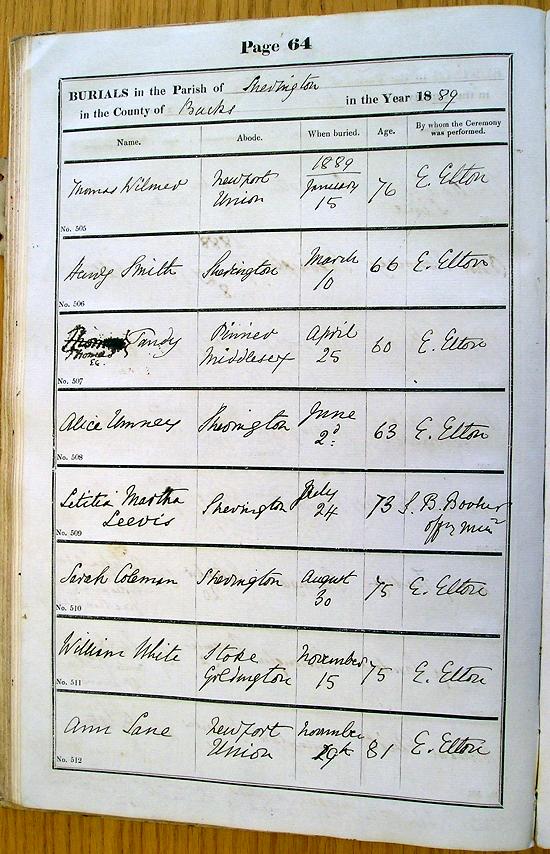 Page 64
BURIALS in the Parish of Sherington
in the County of Bucks in the Year 1889
Name. Abode. When buried. Age. By whom the Ceremony was performed.
1889
Thomas Wilmer Newport Union January 15 76 E. Elton
No. 505
Henry Smith Sherington March 10 66 E. Elton
No. 506
Thomas Tandy Pinner Middlesex April 25 60 E. Elton
Thomas
E.E.
No. 507
Alice Umney Sherington June 2d 63 E. Elton
No. 508
Letitia Martha Leevis Sherington July 24 73 S. B. offg Minr
No. 509
Sarah Coleman Sherington August 30 75 E. Elton
No. 510
William White Stoke Goldington November 15 75 E. Elton
No. 511
Ann Lane Newport Union November 29th 81 E. Elton
No. 512